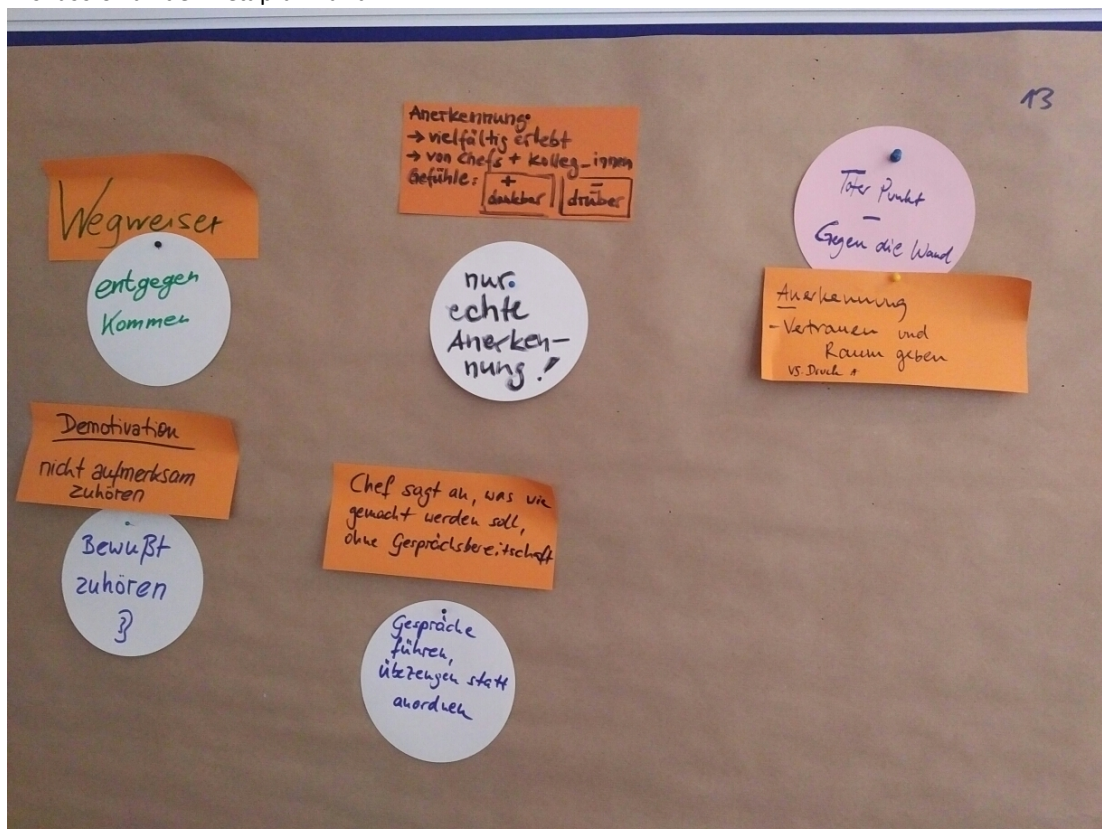 13
Wegweiser
entgegen
kommen
Anerkennung:
→ vielfältig erlebt
→ von Chefs + Kolleg_innen
Gefühle:
+
dankbar
–
drüber
nur
echte
Anerken-
nung!
Toter Punkt
–
Gegen die Wand
Anerkennung
- Vertrauen und
Raum geben
vs. Druck
Demotivation
nicht aufmerksam
zuhören
Bewußt
zuhören
Chef sagt an, was wie
gemacht werden soll,
ohne Gesprächsbereitschaft
Gespräche
führen,
überzeugen statt
anordnen